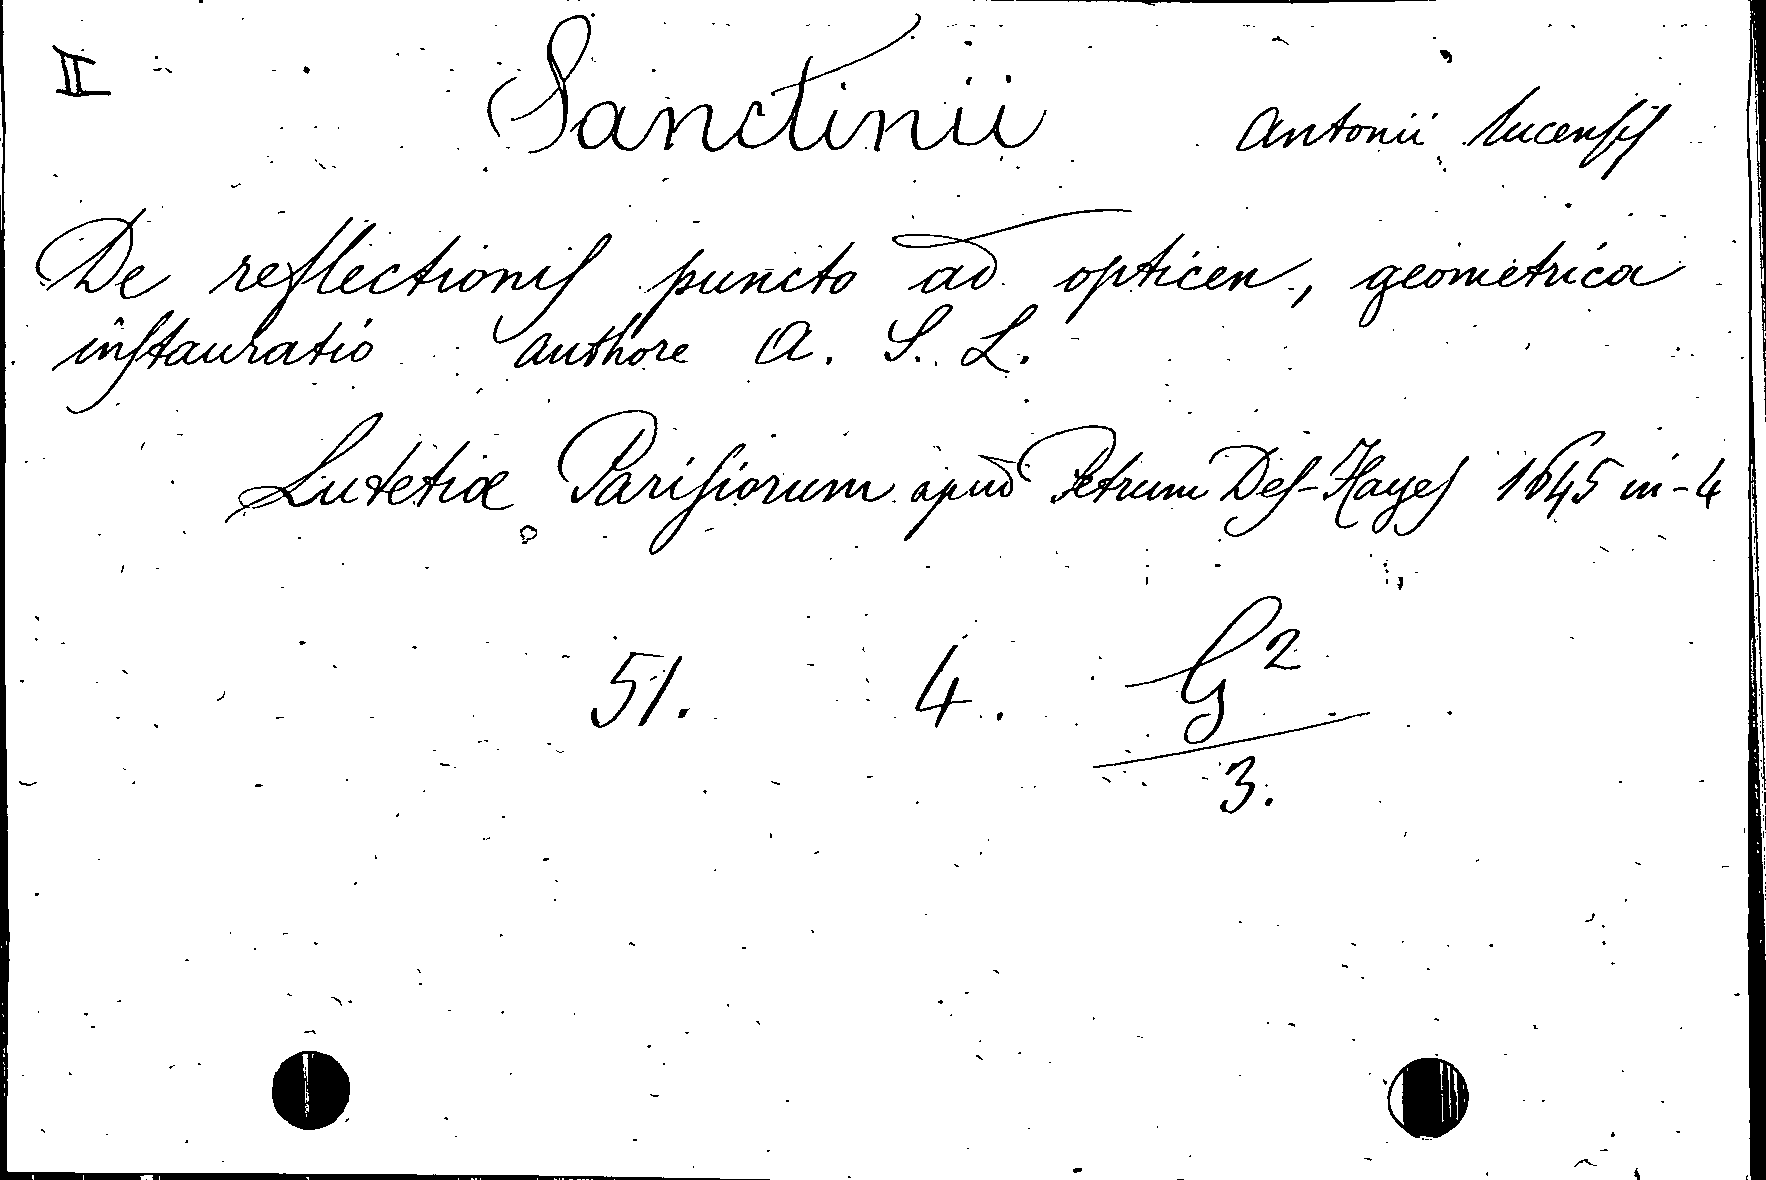 II Sanctinii Antonii lucensis
De reflectionis puncto ad opticen, geometrica
instauratio authore A. S. L.
Lutetiæ Parisiorum apud Petrum Des-Hayes 1645 in-4
51. 4. G²
3.